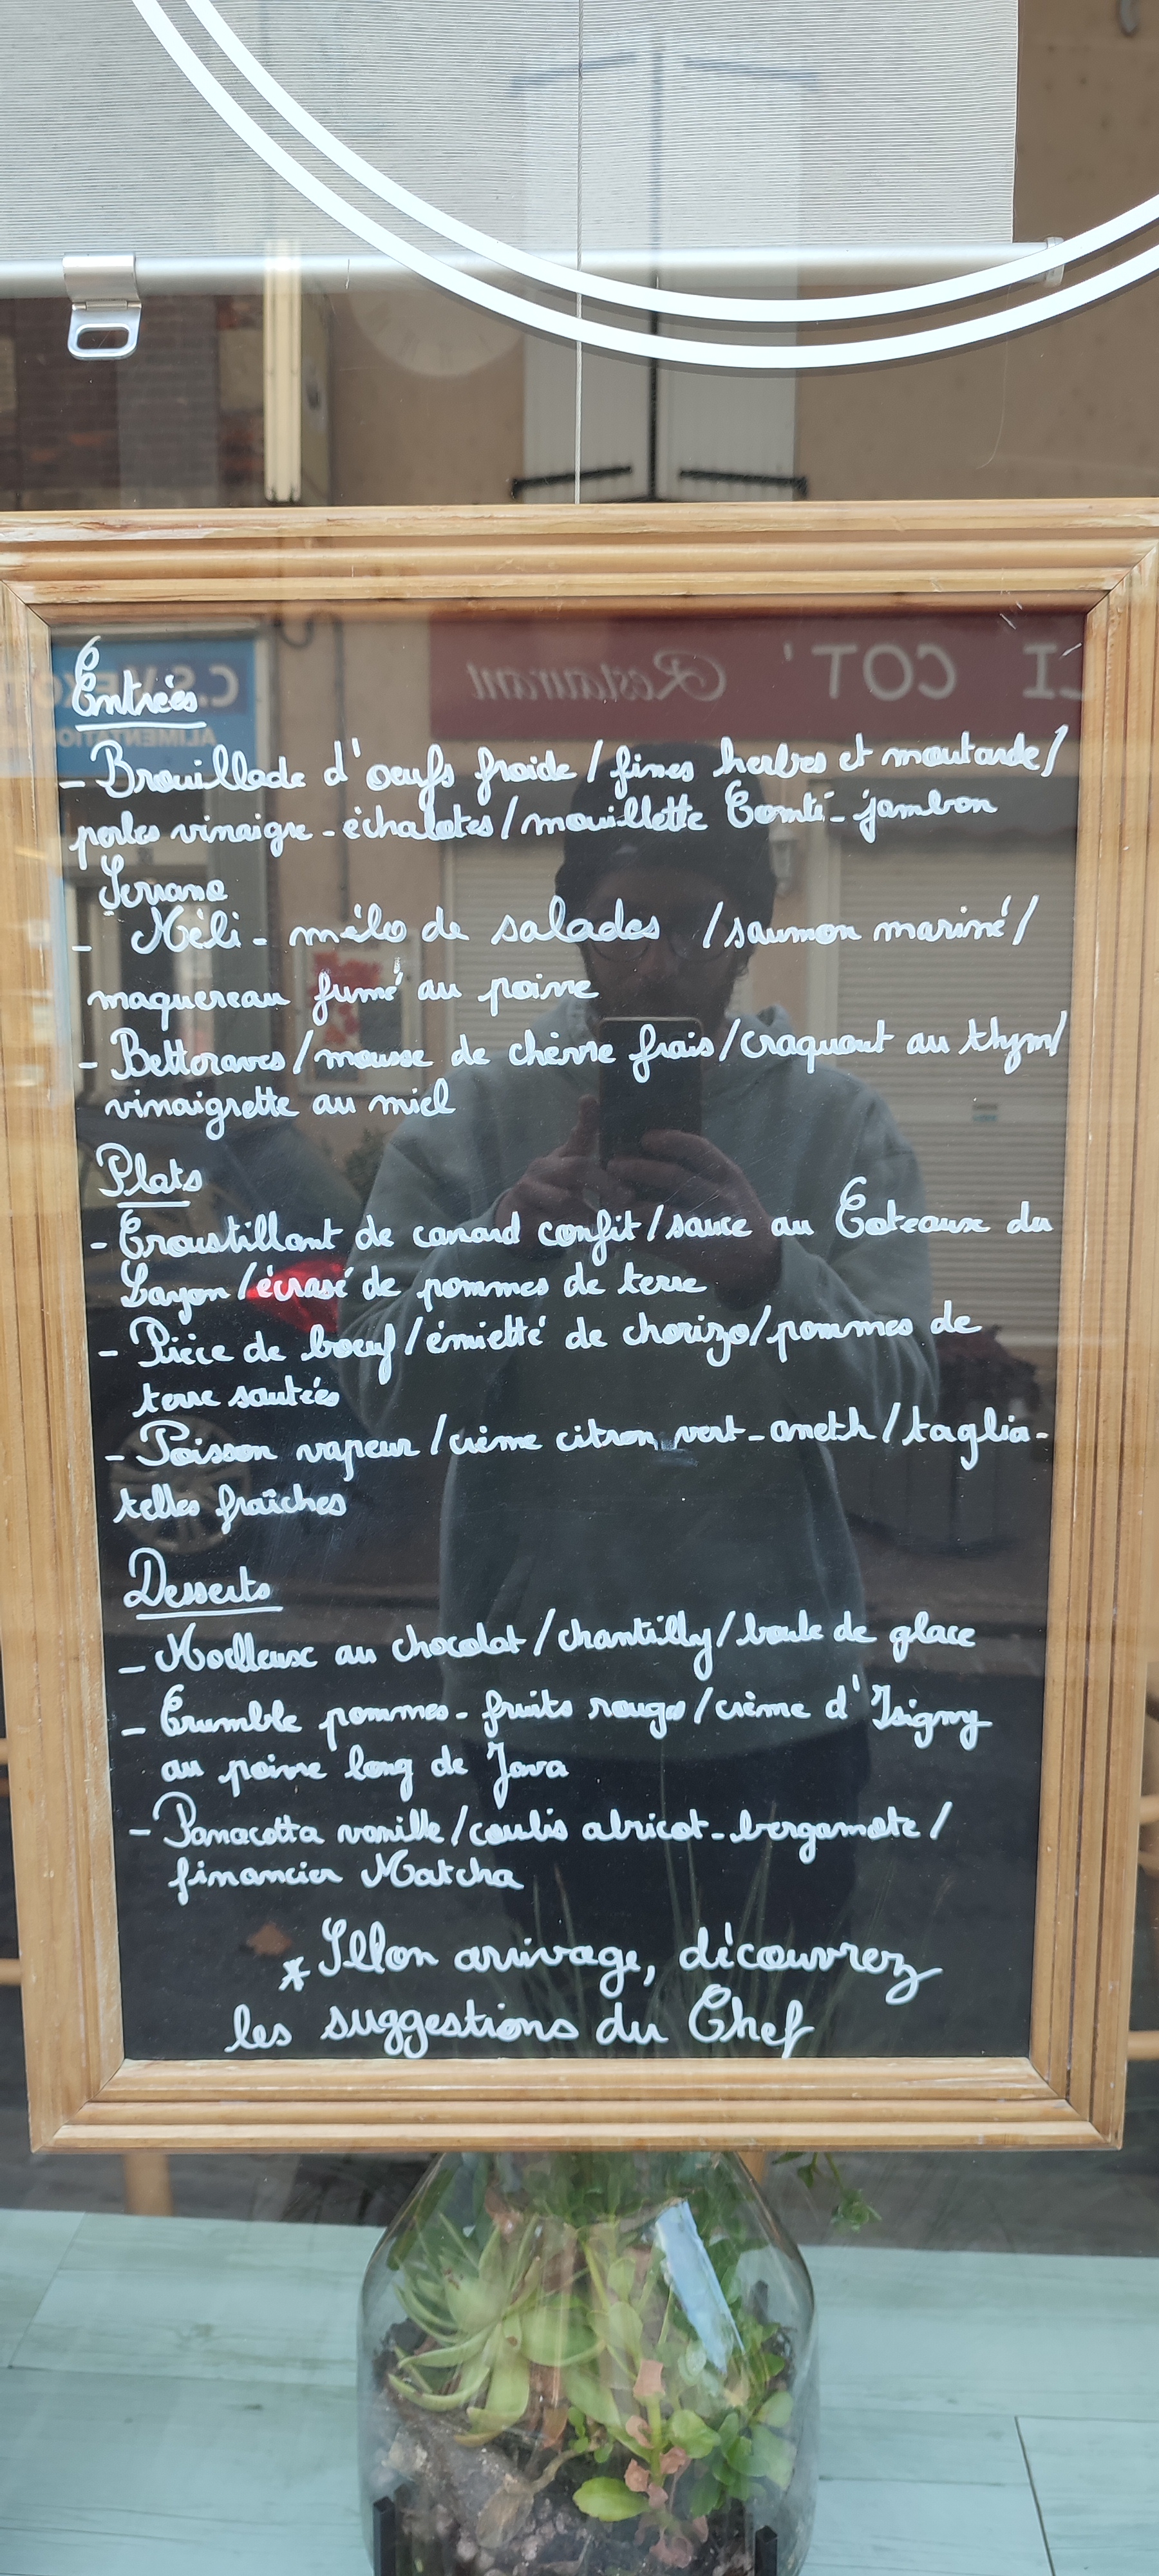 C.S.
ALIMENTATION
LI COT' Restaurant
Entrées
- Brouillade d'oeufs froide / fines herbes et moutarde /
perles vinaigre - échalotes / mouillette Comté - jambon
Serrano
- Méli - mélo de salades / saumon mariné /
maquereau fumé au poivre
- Bettoraves / mousse de chèvre frais / craquant au thym /
vinaigrette au miel
Plats
- Croustillant de canard confit / sauce au Coteaux du
Layon / écrasé de pommes de terre
- Pièce de boeuf / émietté de chorizo / pommes de
terre sautées
- Poisson vapeur / crème citron vert - aneth / taglia-
telles fraîches
Desserts
- Moelleux au chocolat / chantilly / boule de glace
- Crumble pommes - fruits rouges / crème d'Isigny
au poivre long de Java
- Panacotta vanille / coulis abricot - bergamote /
financier Matcha
* Sllon arrivage, découvrez
les suggestions du Chef